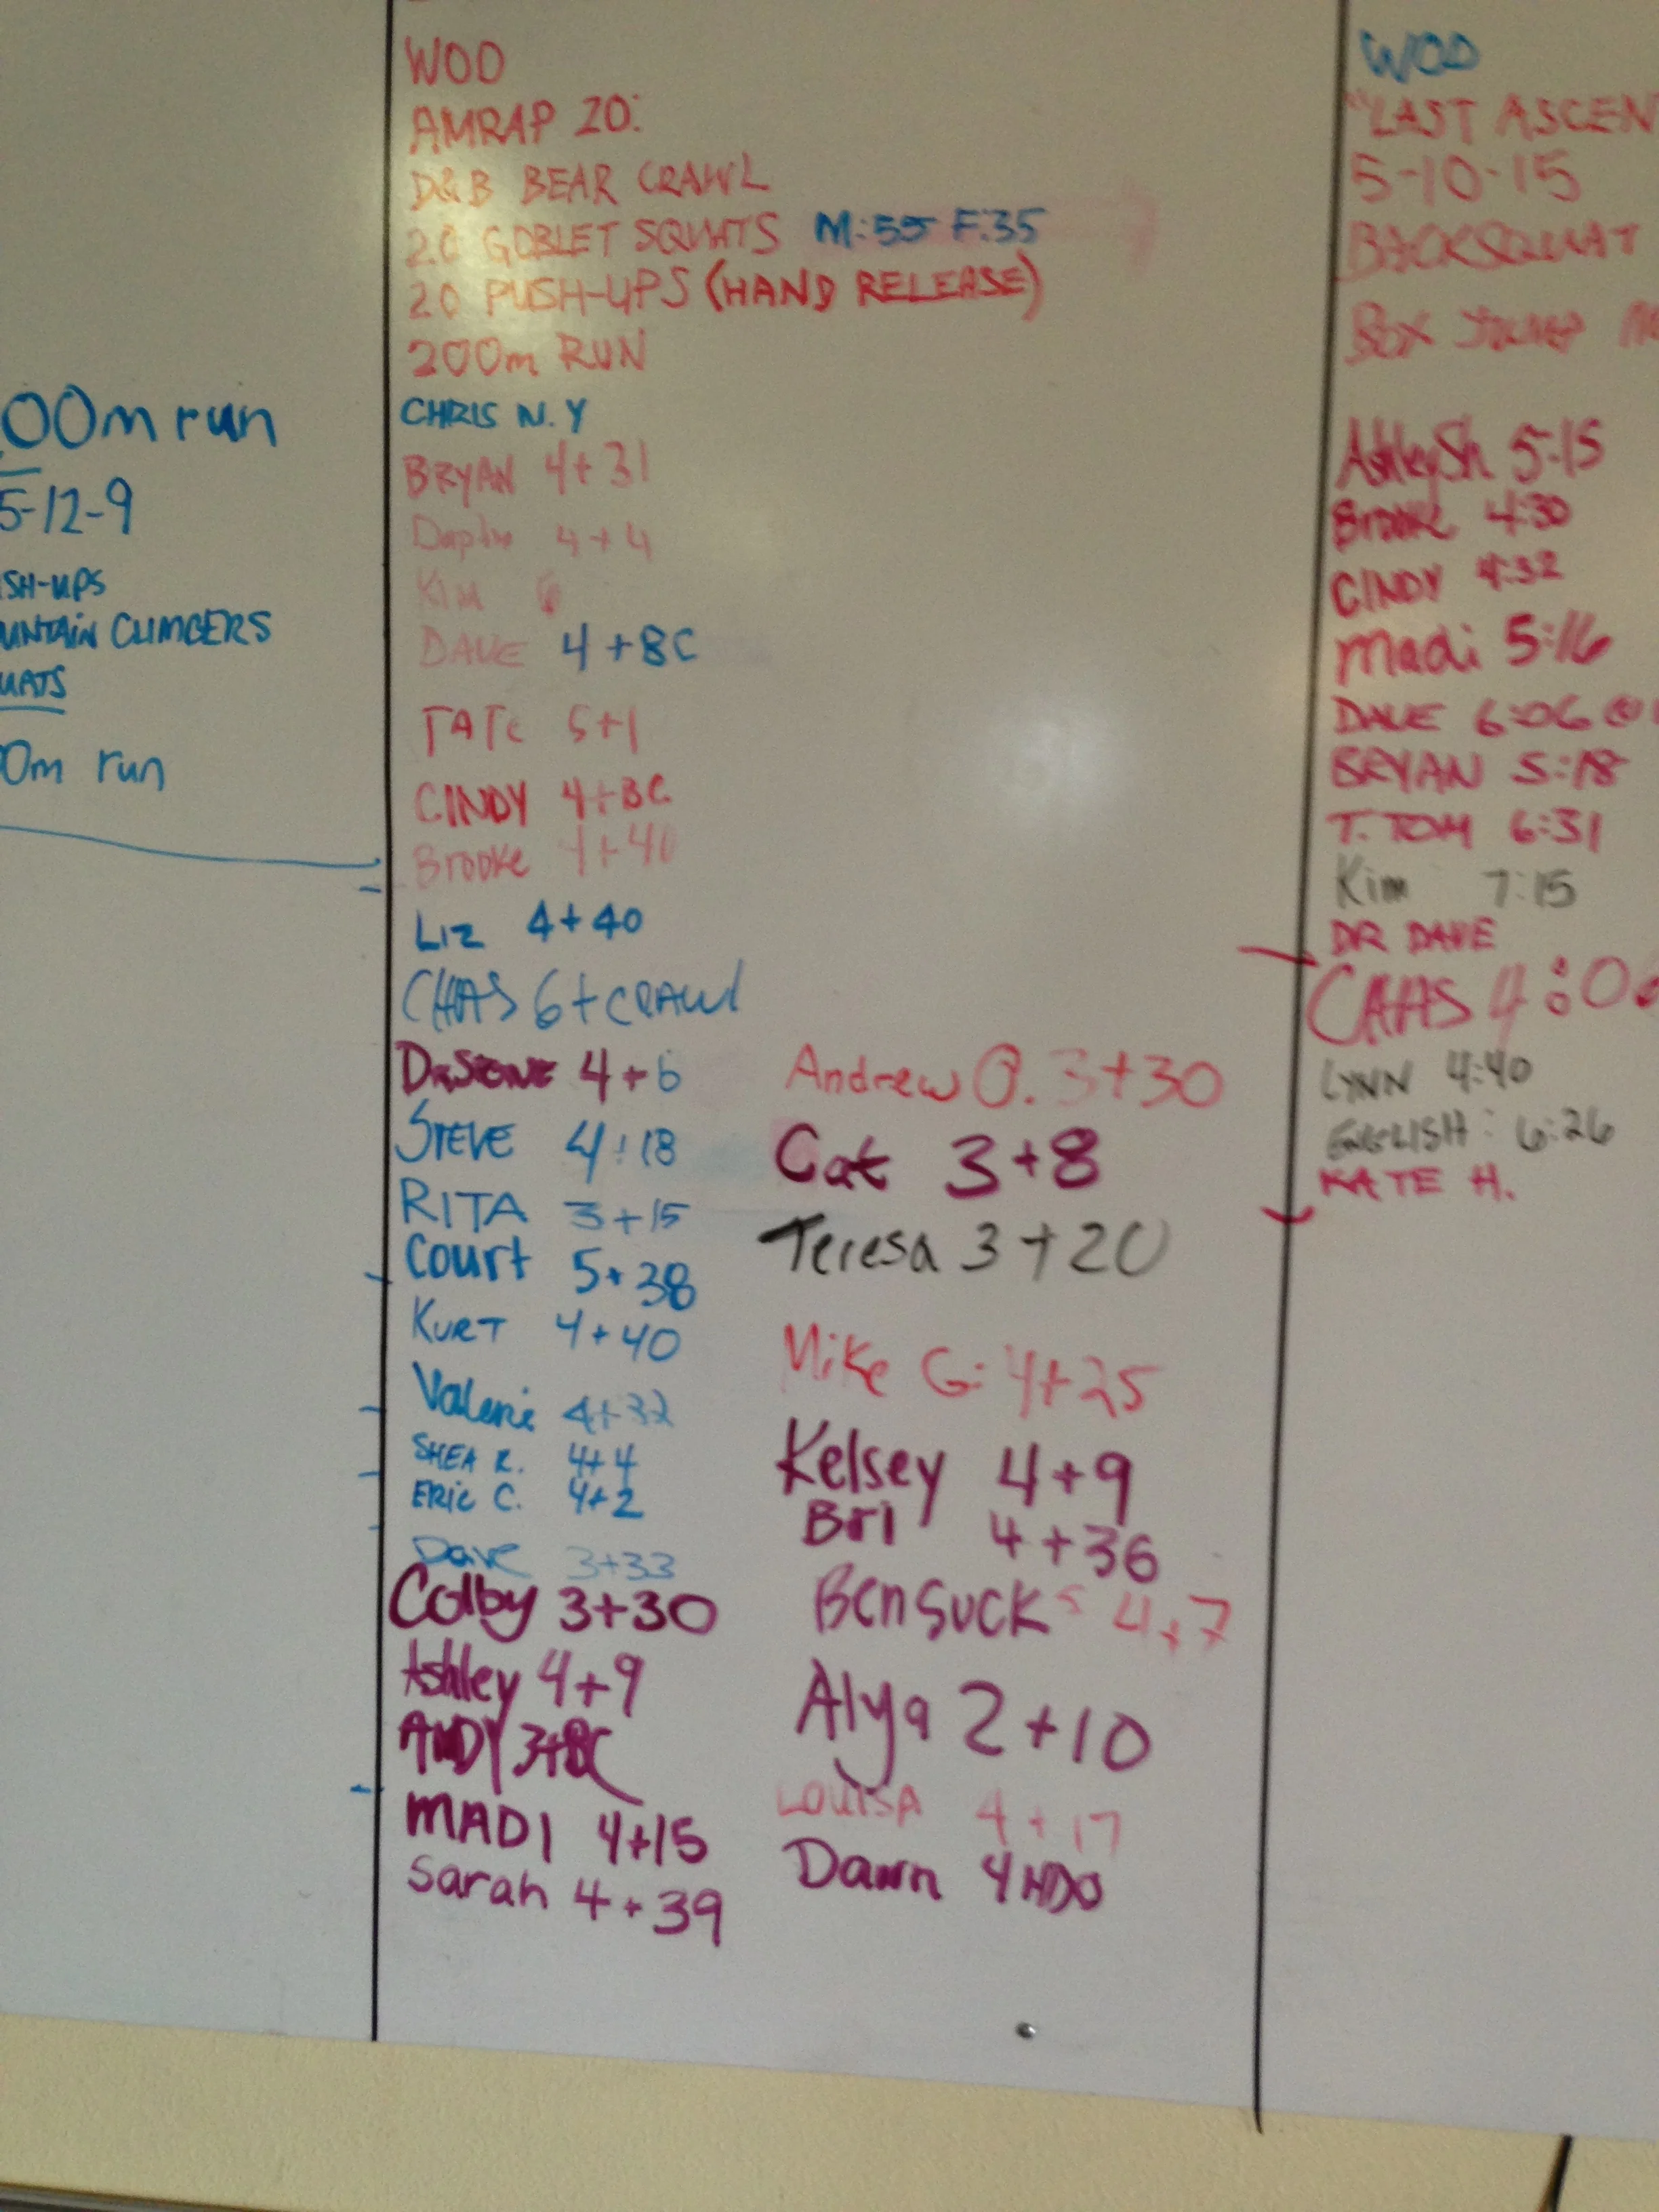 00m run
5-12-9
SH-UPS
UNTAIN CLIMBERS
UATS
0m run
WOD
AMRAP 20:
D&B BEAR CRAWL
20 GOBLET SQUATS M:55 F:35
20 PUSH-UPS (HAND RELEASE)
200m RUN
CHRIS N.Y
BRYAN 4+31
4+4
Kim 6
DAVE 4+BC
TATE 5+1
CINDY 4+BC
Brooke 4+40
Liz 4+40
CHAS 6+CRAWL
DRSTONE 4+6
STEVE 4+18
RITA 3+15
Court 5+38
KURT 4+40
Valerie 4+32
SHEA R. 4+4
ERIC C. 4+2
Dave 3+33
Colby 3+30
Ashley 4+9
ANDY 3+BC
MADI 4+15
Sarah 4+39
Andrew O. 3+30
Cat 3+8
Teresa 3+20
Mike G: 4+25
Kelsey 4+9
Bri 4+36
Ben SUCKS 4+7
Alya 2+10
LOUISA 4+17
Dawn 4
WOD
"LAST ASCEN
5-10-15
BACKSQUAT
BOX JUMP
AshleySh 5:15
Brooke 4:30
CINDY 4:32
Madi 5:16
DAVE 6:06 @
BRYAN 5:18
T. TOM 6:31
Kim 7:15
DR DAVE
CHAS 4:0
LYNN 4:40
ENGLISH: 6:26
KATE H.